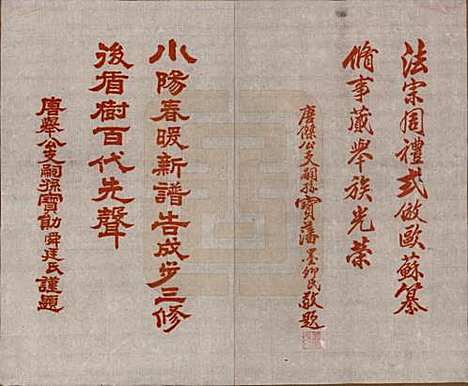 法宗周禮式倣歐蘇纂
脩事蕆舉族光榮
唐傑公支嗣孫寶藩墨卿氏敬題
小陽春暖新譜告成步三修
後盾樹百代先聲
唐舉公支嗣孫寶勛舜廷氏謹題